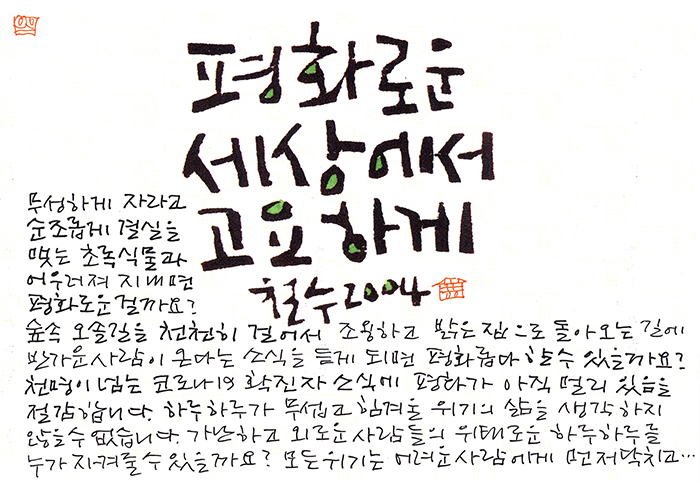 평화로운
세상에서
고요하게
철수 2004
무성하게 자라고
순조롭게 결실을
맺는 초록식물과
어우러져 지내면
평화로운걸까요?
숲속 오솔길을 천천히 걸어서 조용하고 밝은 집으로 돌아오는 길에
반가운 사람이 온다는 소식을 듣게 되면 평화롭다 할 수 있을까요?
천명이 넘는 코로나19 확진자 소식에 평화가 아직 멀리 있음을
절감합니다. 하루하루가 무섭고 힘겨울 위기의 삶을 생각하지
않을 수 없습니다. 가난하고 외로운 사람들의 위태로운 하루하루를
누가 지켜줄 수 있을까요? 모든 위기는 어려운 사람에게 먼저 닥치고…